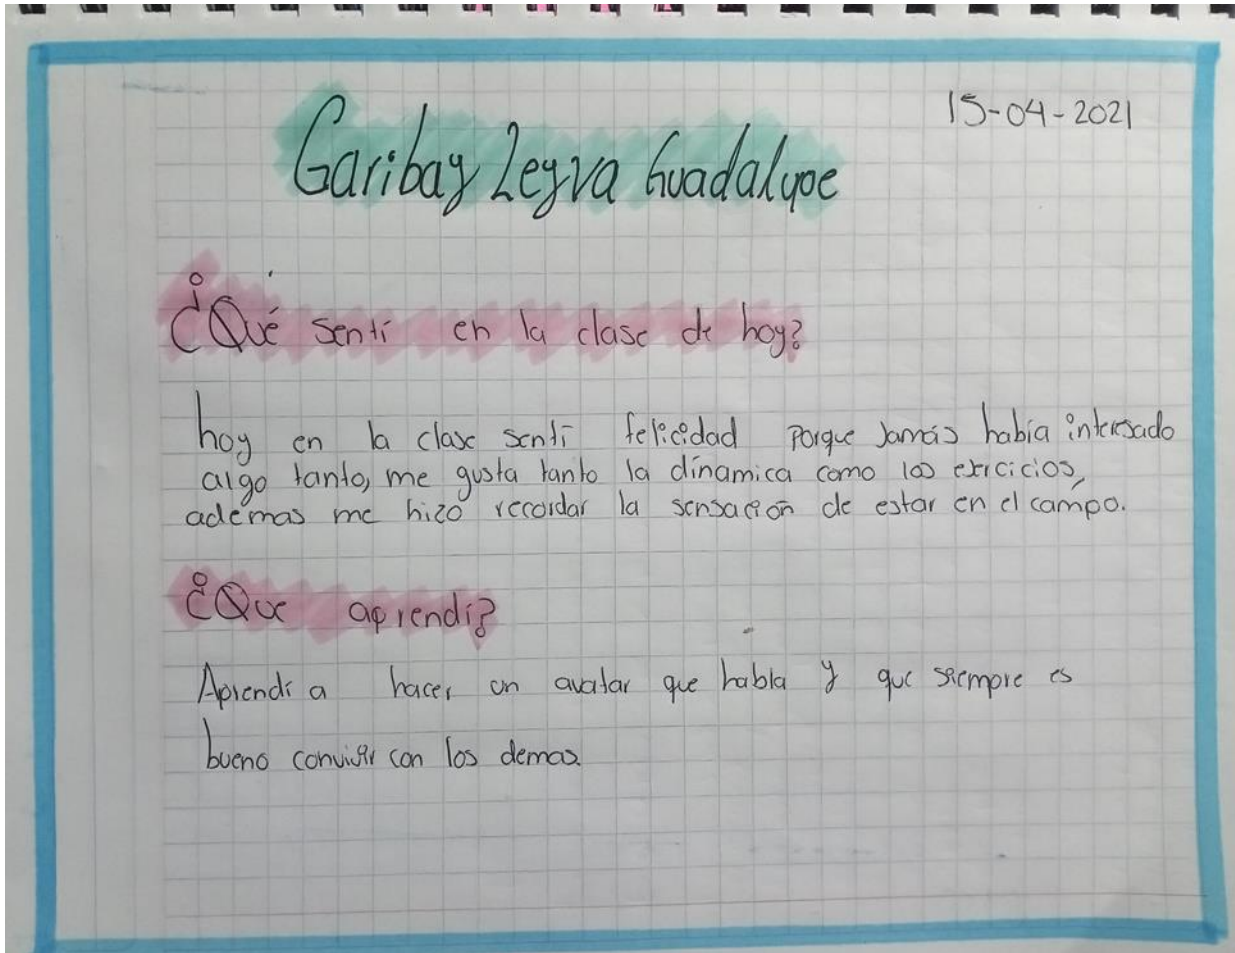 15-04-2021
Garibay Leyva Guadalupe
¿Qué sentí en la clase de hoy?
hoy en la clase sentí felicidad porque jamás había interesado
algo tanto, me gusta tanto la dinamica como los exricicios,
ademas me hizo recordar la sensación de estar en el campo.
¿Que aprendí?
Aprendí a hacer un avatar que habla y que siempre es
bueno convivir con los demas.